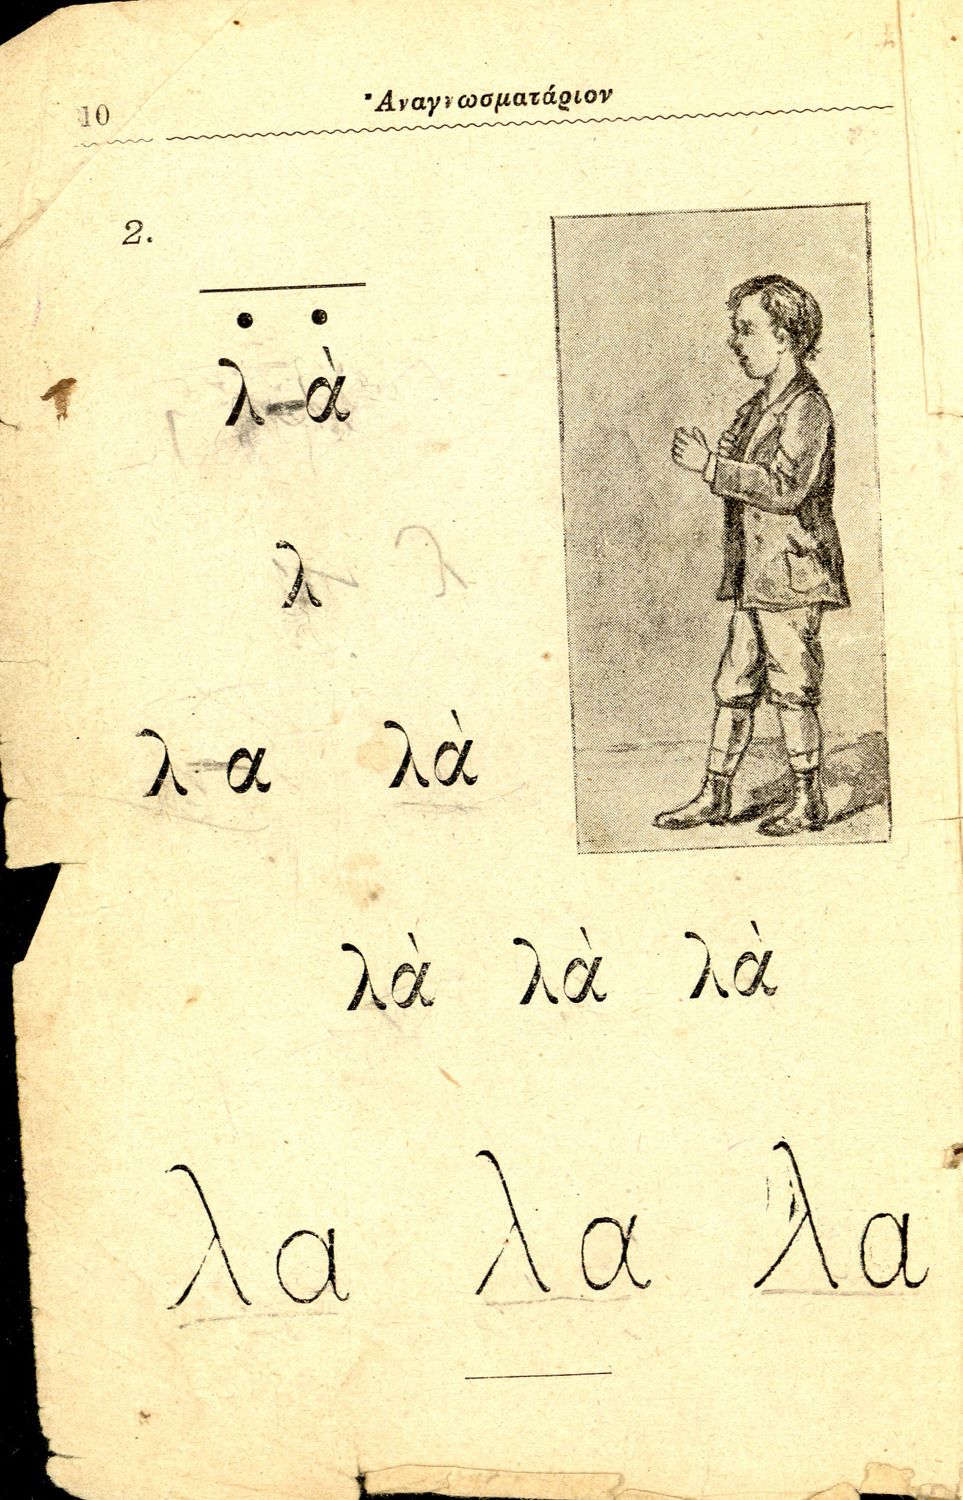 10
Ἀναγνωσματάριον
2.
λ ὰ
λ λ
λ α λὰ
λὰ λὰ λὰ
λα λα λα